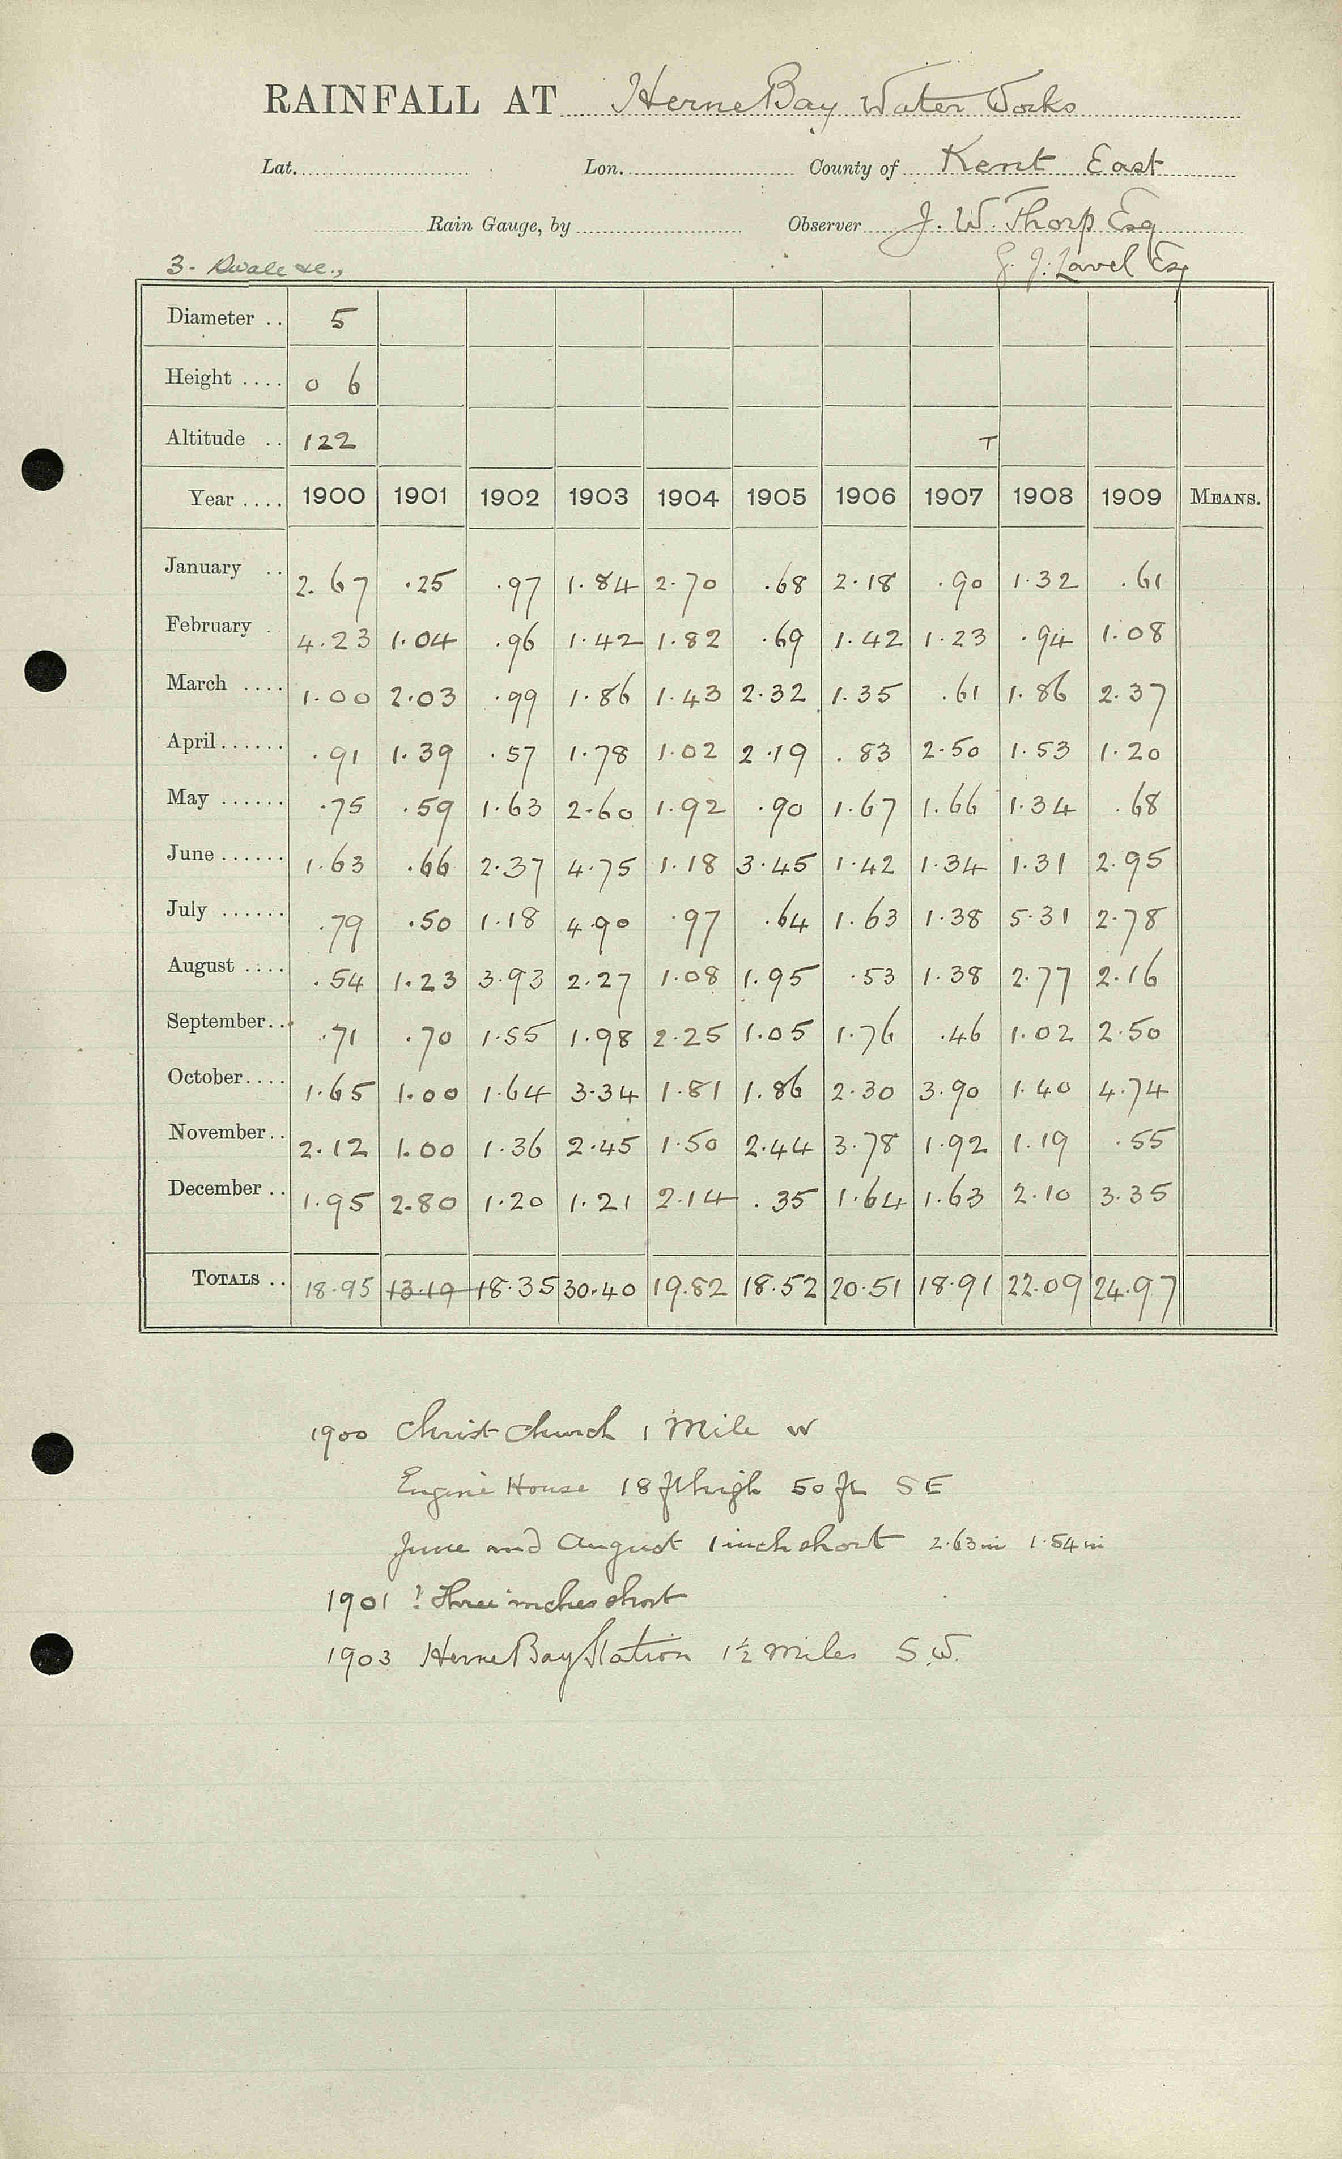 RAINFALL AT Herne Bay Water Works
Lat. Lon. County of Kent East
Rain Gauge, by Observer J. W. Thorp Esq
3. Swale &c., G. J. Lavel Esq
Diameter .. 5
Height .... 0 6
Altitude .. 122 T
Year .... 1900 1901 1902 1903 1904 1905 1906 1907 1908 1909 MEANS.
January .. 2.67 .25 .97 1.84 2.70 .68 2.18 .90 1.32 .61
February . 4.23 1.04 .96 1.42 1.82 .69 1.42 1.23 .94 1.08
March .... 1.00 2.03 .99 1.86 1.43 2.32 1.35 .61 1.86 2.37
April...... .91 1.39 .57 1.78 1.02 2.19 .83 2.50 1.53 1.20
May ...... .75 .59 1.63 2.60 1.92 .90 1.67 1.66 1.34 .68
June...... 1.63 .66 2.37 4.75 1.18 3.45 1.42 1.34 1.31 2.95
July ...... .79 .50 1.18 4.90 .97 .64 1.63 1.38 5.31 2.78
August .... .54 1.23 3.93 2.27 1.08 1.95 .53 1.38 2.77 2.16
September.. .71 .70 1.55 1.98 2.25 1.05 1.76 .46 1.02 2.50
October.... 1.65 1.00 1.64 3.34 1.81 1.86 2.30 3.90 1.40 4.74
November.. 2.12 1.00 1.36 2.45 1.50 2.44 3.78 1.92 1.19 .55
December .. 1.95 2.80 1.20 1.21 2.14 .35 1.64 1.63 2.10 3.35
TOTALS .. 18.95 13.19 18.35 30.40 19.82 18.52 20.51 18.91 22.09 24.97
1900 Christ Church 1 Mile W
Engine House 18 ft high 50 ft SE
June and August 1 inch short 2.63 in 1.54 in
1901 ? Three inches short
1903 Herne Bay Station 1½ miles S.W.